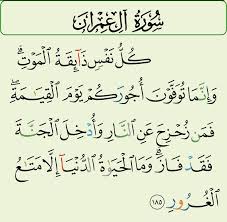 سُورَةُ آلِ عِمْرَان
كُلُّ نَفْسٍ ذَآئِقَةُ ٱلْمَوْتِۗ
وَإِنَّمَا تُوَفَّوْنَ أُجُورَكُمْ يَوْمَ ٱلْقِيَٰمَةِۖ
فَمَن زُحْزِحَ عَنِ ٱلنَّارِ وَأُدْخِلَ ٱلْجَنَّةَ
فَقَدْ فَازَۗ وَمَا ٱلْحَيَوٰةُ ٱلدُّنْيَآ إِلَّا مَتَٰعُ
ٱلْغُرُورِ ١٨٥